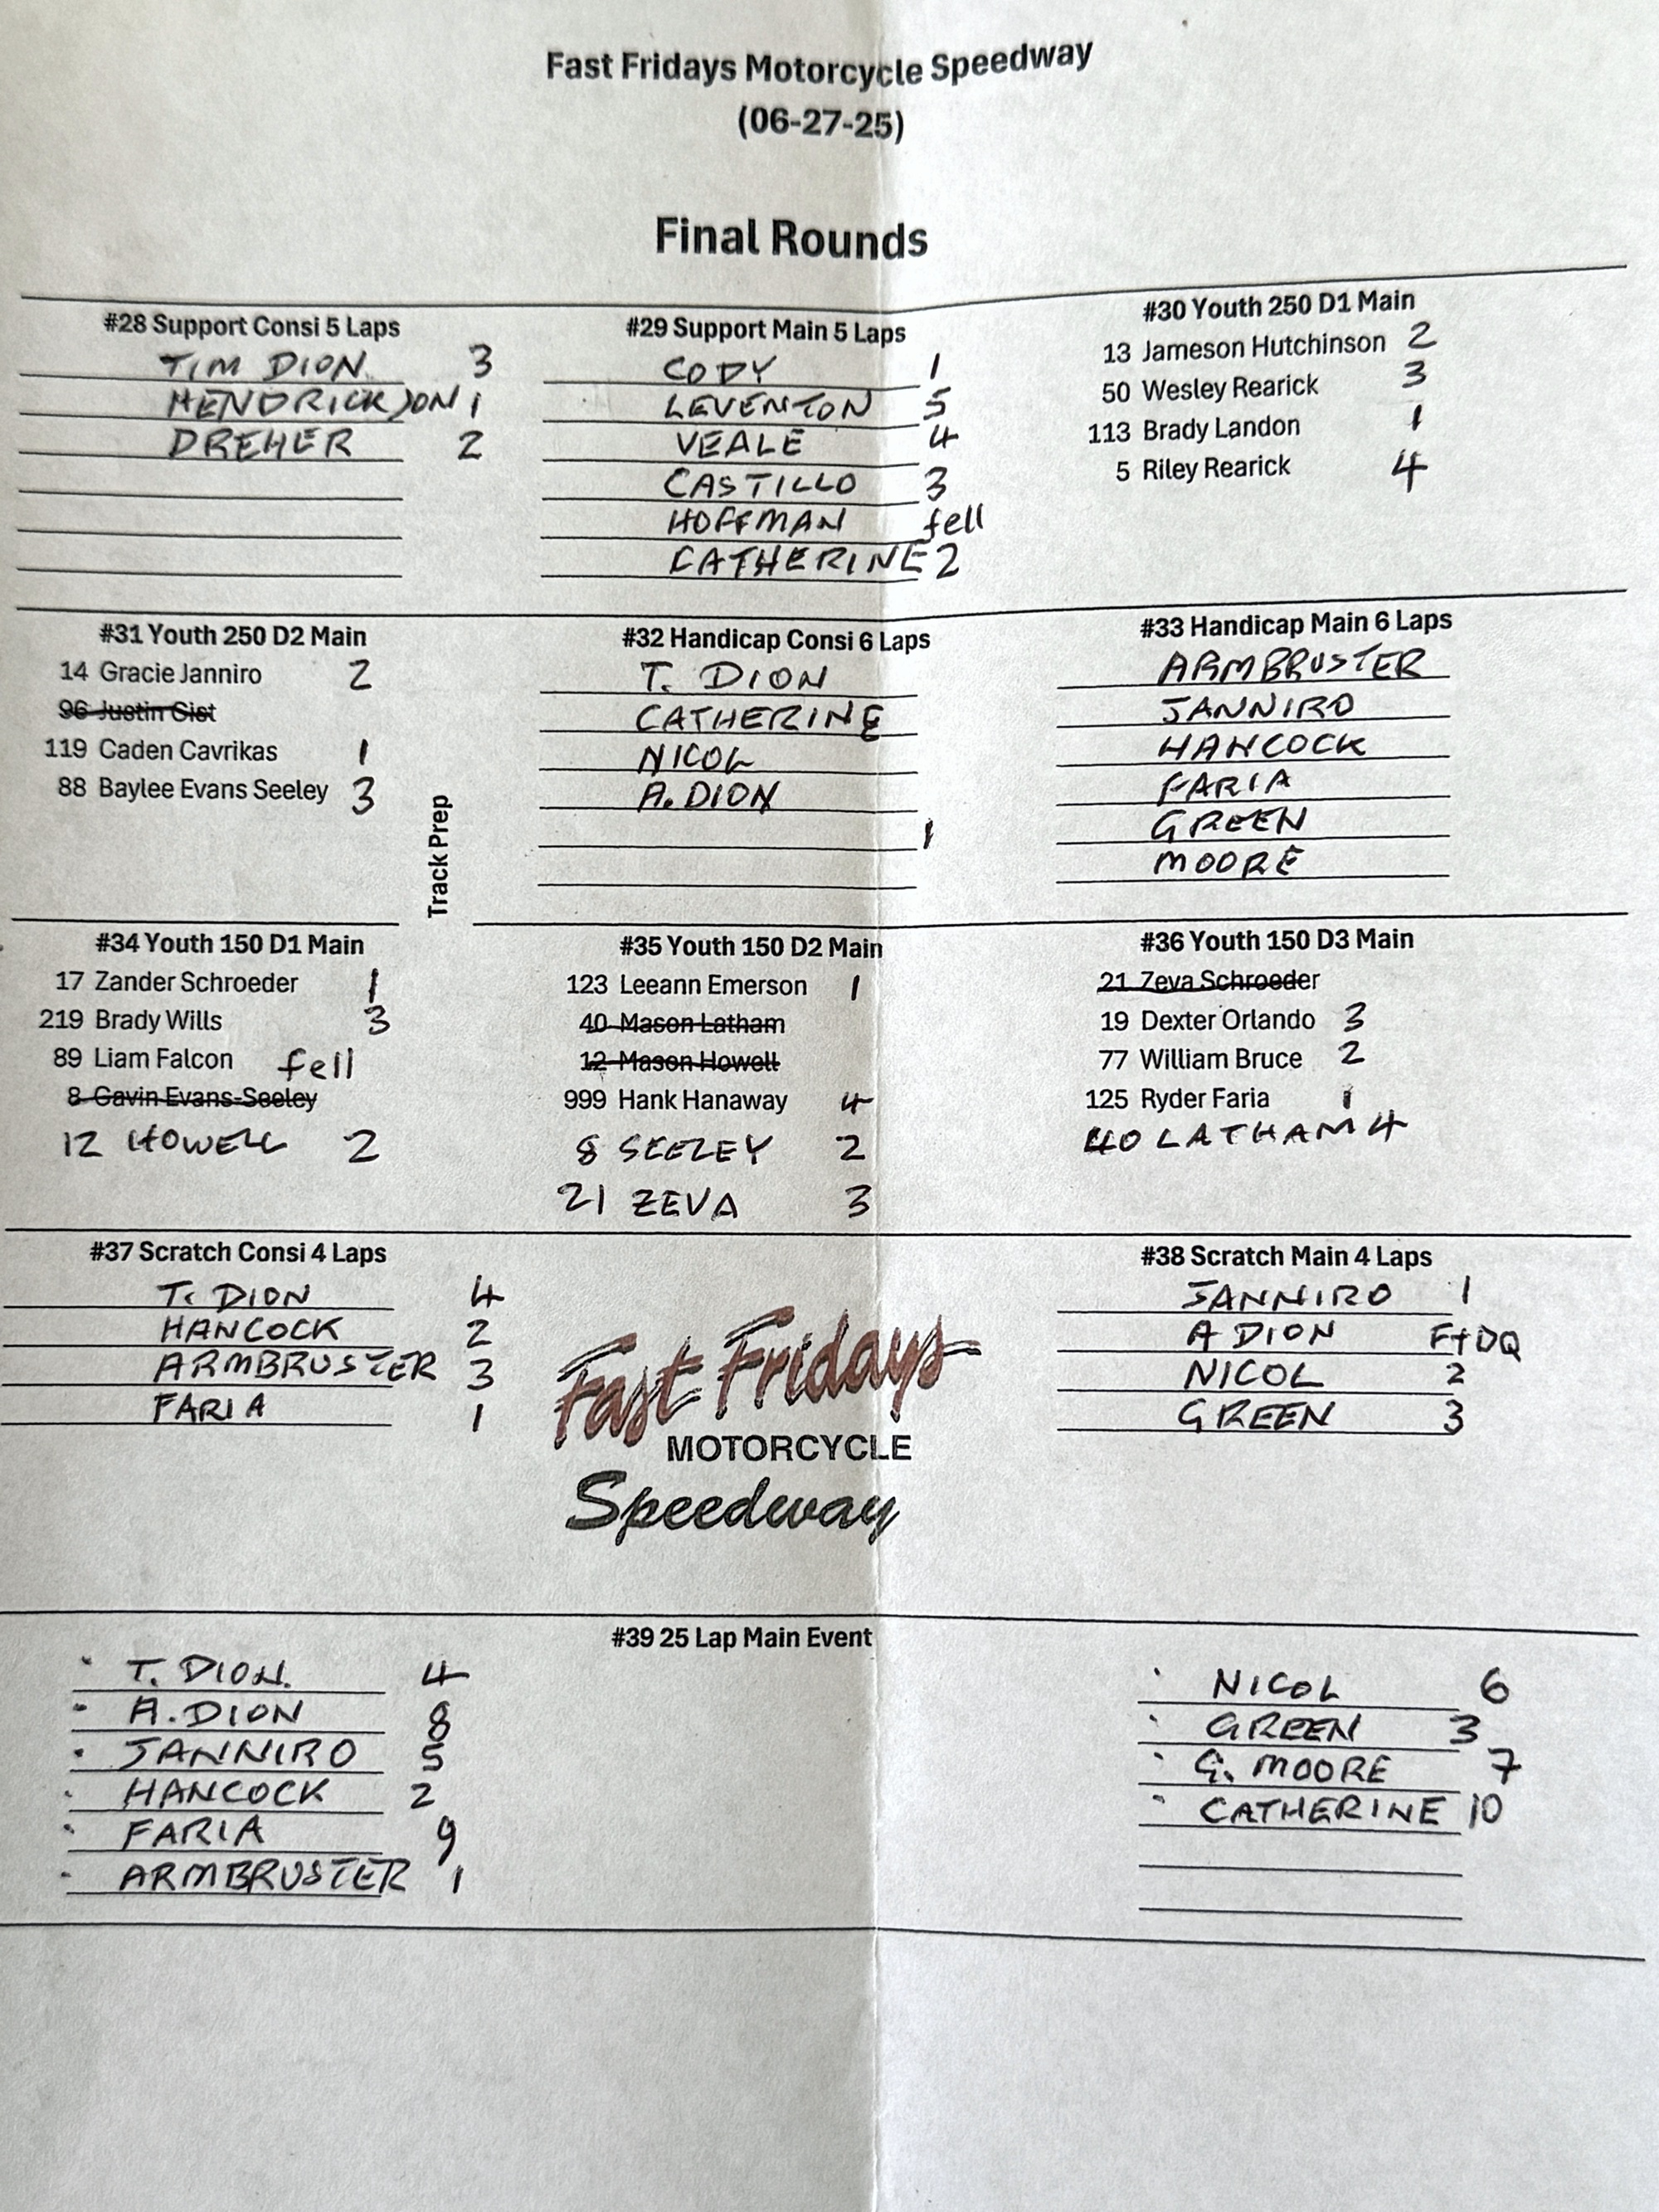 Fast Fridays Motorcycle Speedway
(06-27-25)
Final Rounds
#28 Support Consi 5 Laps
TIM DION 3
HENDRICKSON 1
DREHER 2
#29 Support Main 5 Laps
CODY 1
LEVENTON 5
VEALE 4
CASTILLO 3
HOFFMAN fell
CATHERINE 2
#30 Youth 250 D1 Main
13 Jameson Hutchinson 2
50 Wesley Rearick 3
113 Brady Landon 1
5 Riley Rearick 4
#31 Youth 250 D2 Main
14 Gracie Janniro 2
96 Justin Gist
119 Caden Cavrikas 1
88 Baylee Evans Seeley 3
Track Prep
#32 Handicap Consi 6 Laps
T. DION
CATHERINE
NICOL
A. DION
1
#33 Handicap Main 6 Laps
ARMBRUSTER
JANNIRO
HANCOCK
FARIA
GREEN
MOORE
#34 Youth 150 D1 Main
17 Zander Schroeder 1
219 Brady Wills 3
89 Liam Falcon fell
8 Gavin Evans-Seeley
12 HOWELL 2
#35 Youth 150 D2 Main
123 Leeann Emerson 1
40 Mason Latham
12 Mason Howell
999 Hank Hanaway 4
8 SEELEY 2
21 ZEVA 3
#36 Youth 150 D3 Main
21 Zeva Schroeder
19 Dexter Orlando 3
77 William Bruce 2
125 Ryder Faria 1
40 LATHAM 4
#37 Scratch Consi 4 Laps
T. DION 4
HANCOCK 2
ARMBRUSTER 3
FARIA 1
Fast Fridays
MOTORCYCLE
Speedway
#38 Scratch Main 4 Laps
JANNIRO 1
A DION F+DQ
NICOL 2
GREEN 3
#39 25 Lap Main Event
T. DION. 4
A. DION 8
JANNIRO 5
HANCOCK 2
FARIA 9
ARMBRUSTER 1
NICOL 6
GREEN 3
G. MOORE 7
CATHERINE 10